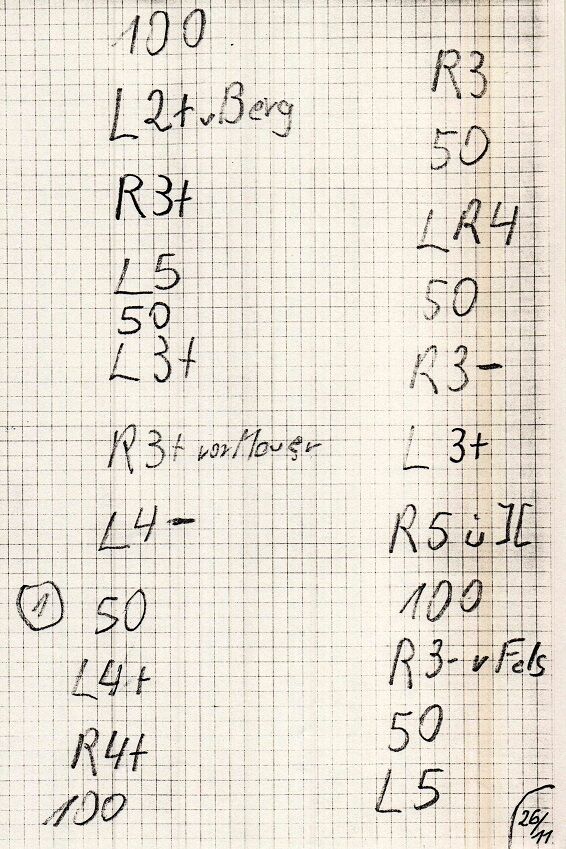 100
L2+ v Berg
R3+
L5
50
L3+
R3+ vor Mauer
L4-
① 50
L4+
R4+
100
R3
50
LR4
50
R3-
L3+
R5 ü ][
100
R3- v Fels
50
L5
26/11